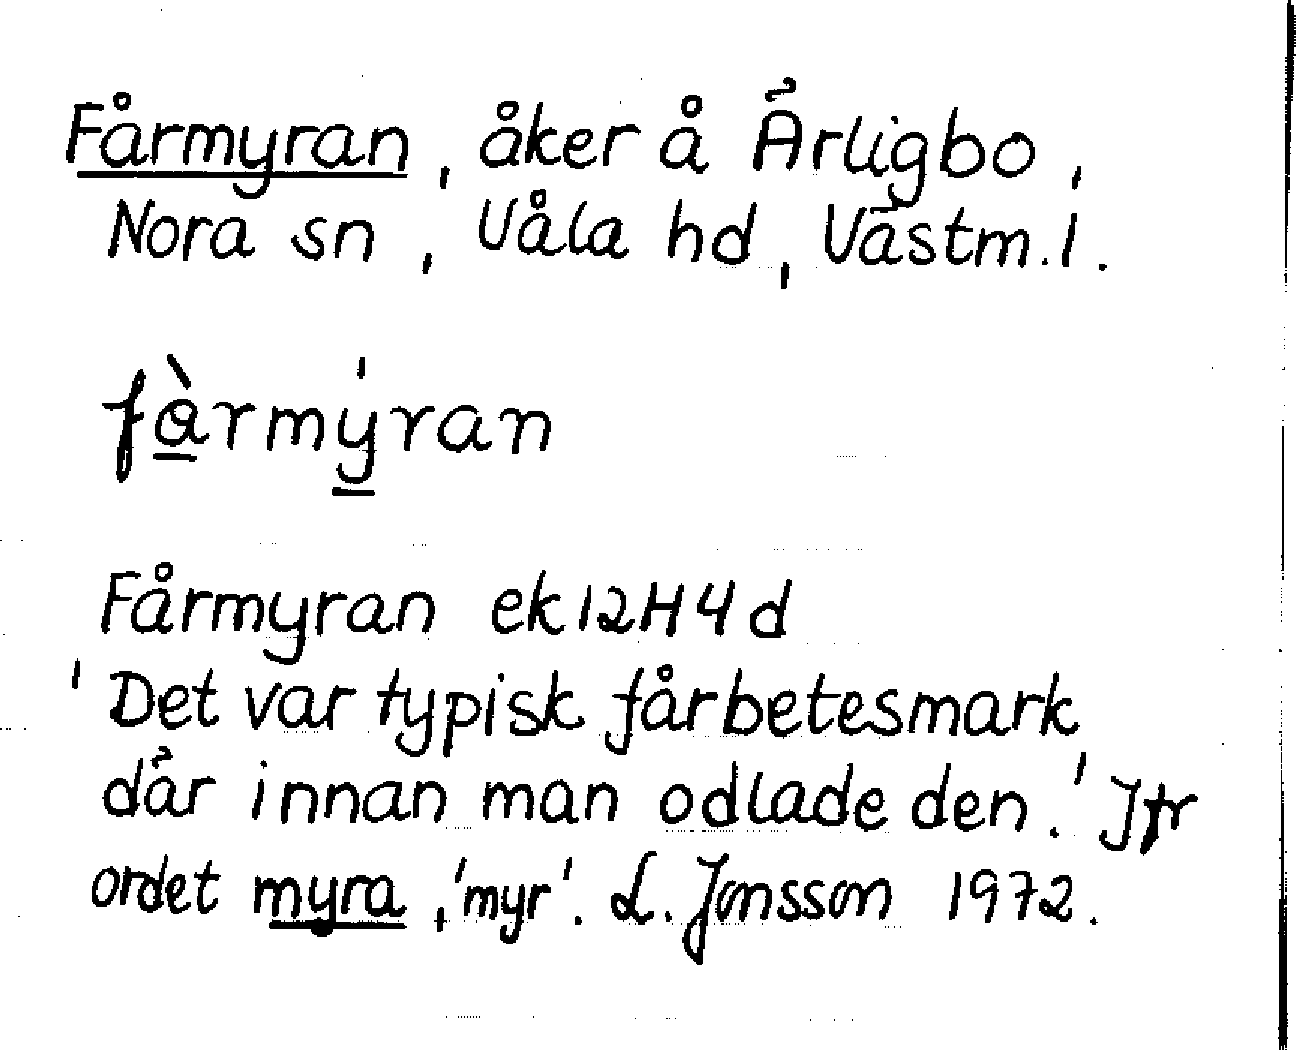 Fårmyran, åker å Ärligbo,
Nora sn, Våla hd, Västm.l.
fàrmýran
Fårmyran ek 12H4d
'Det var typisk fårbetesmark
där innan man odlade den.' Jfr
ordet myra, 'myr'. L. Jonsson 1972.